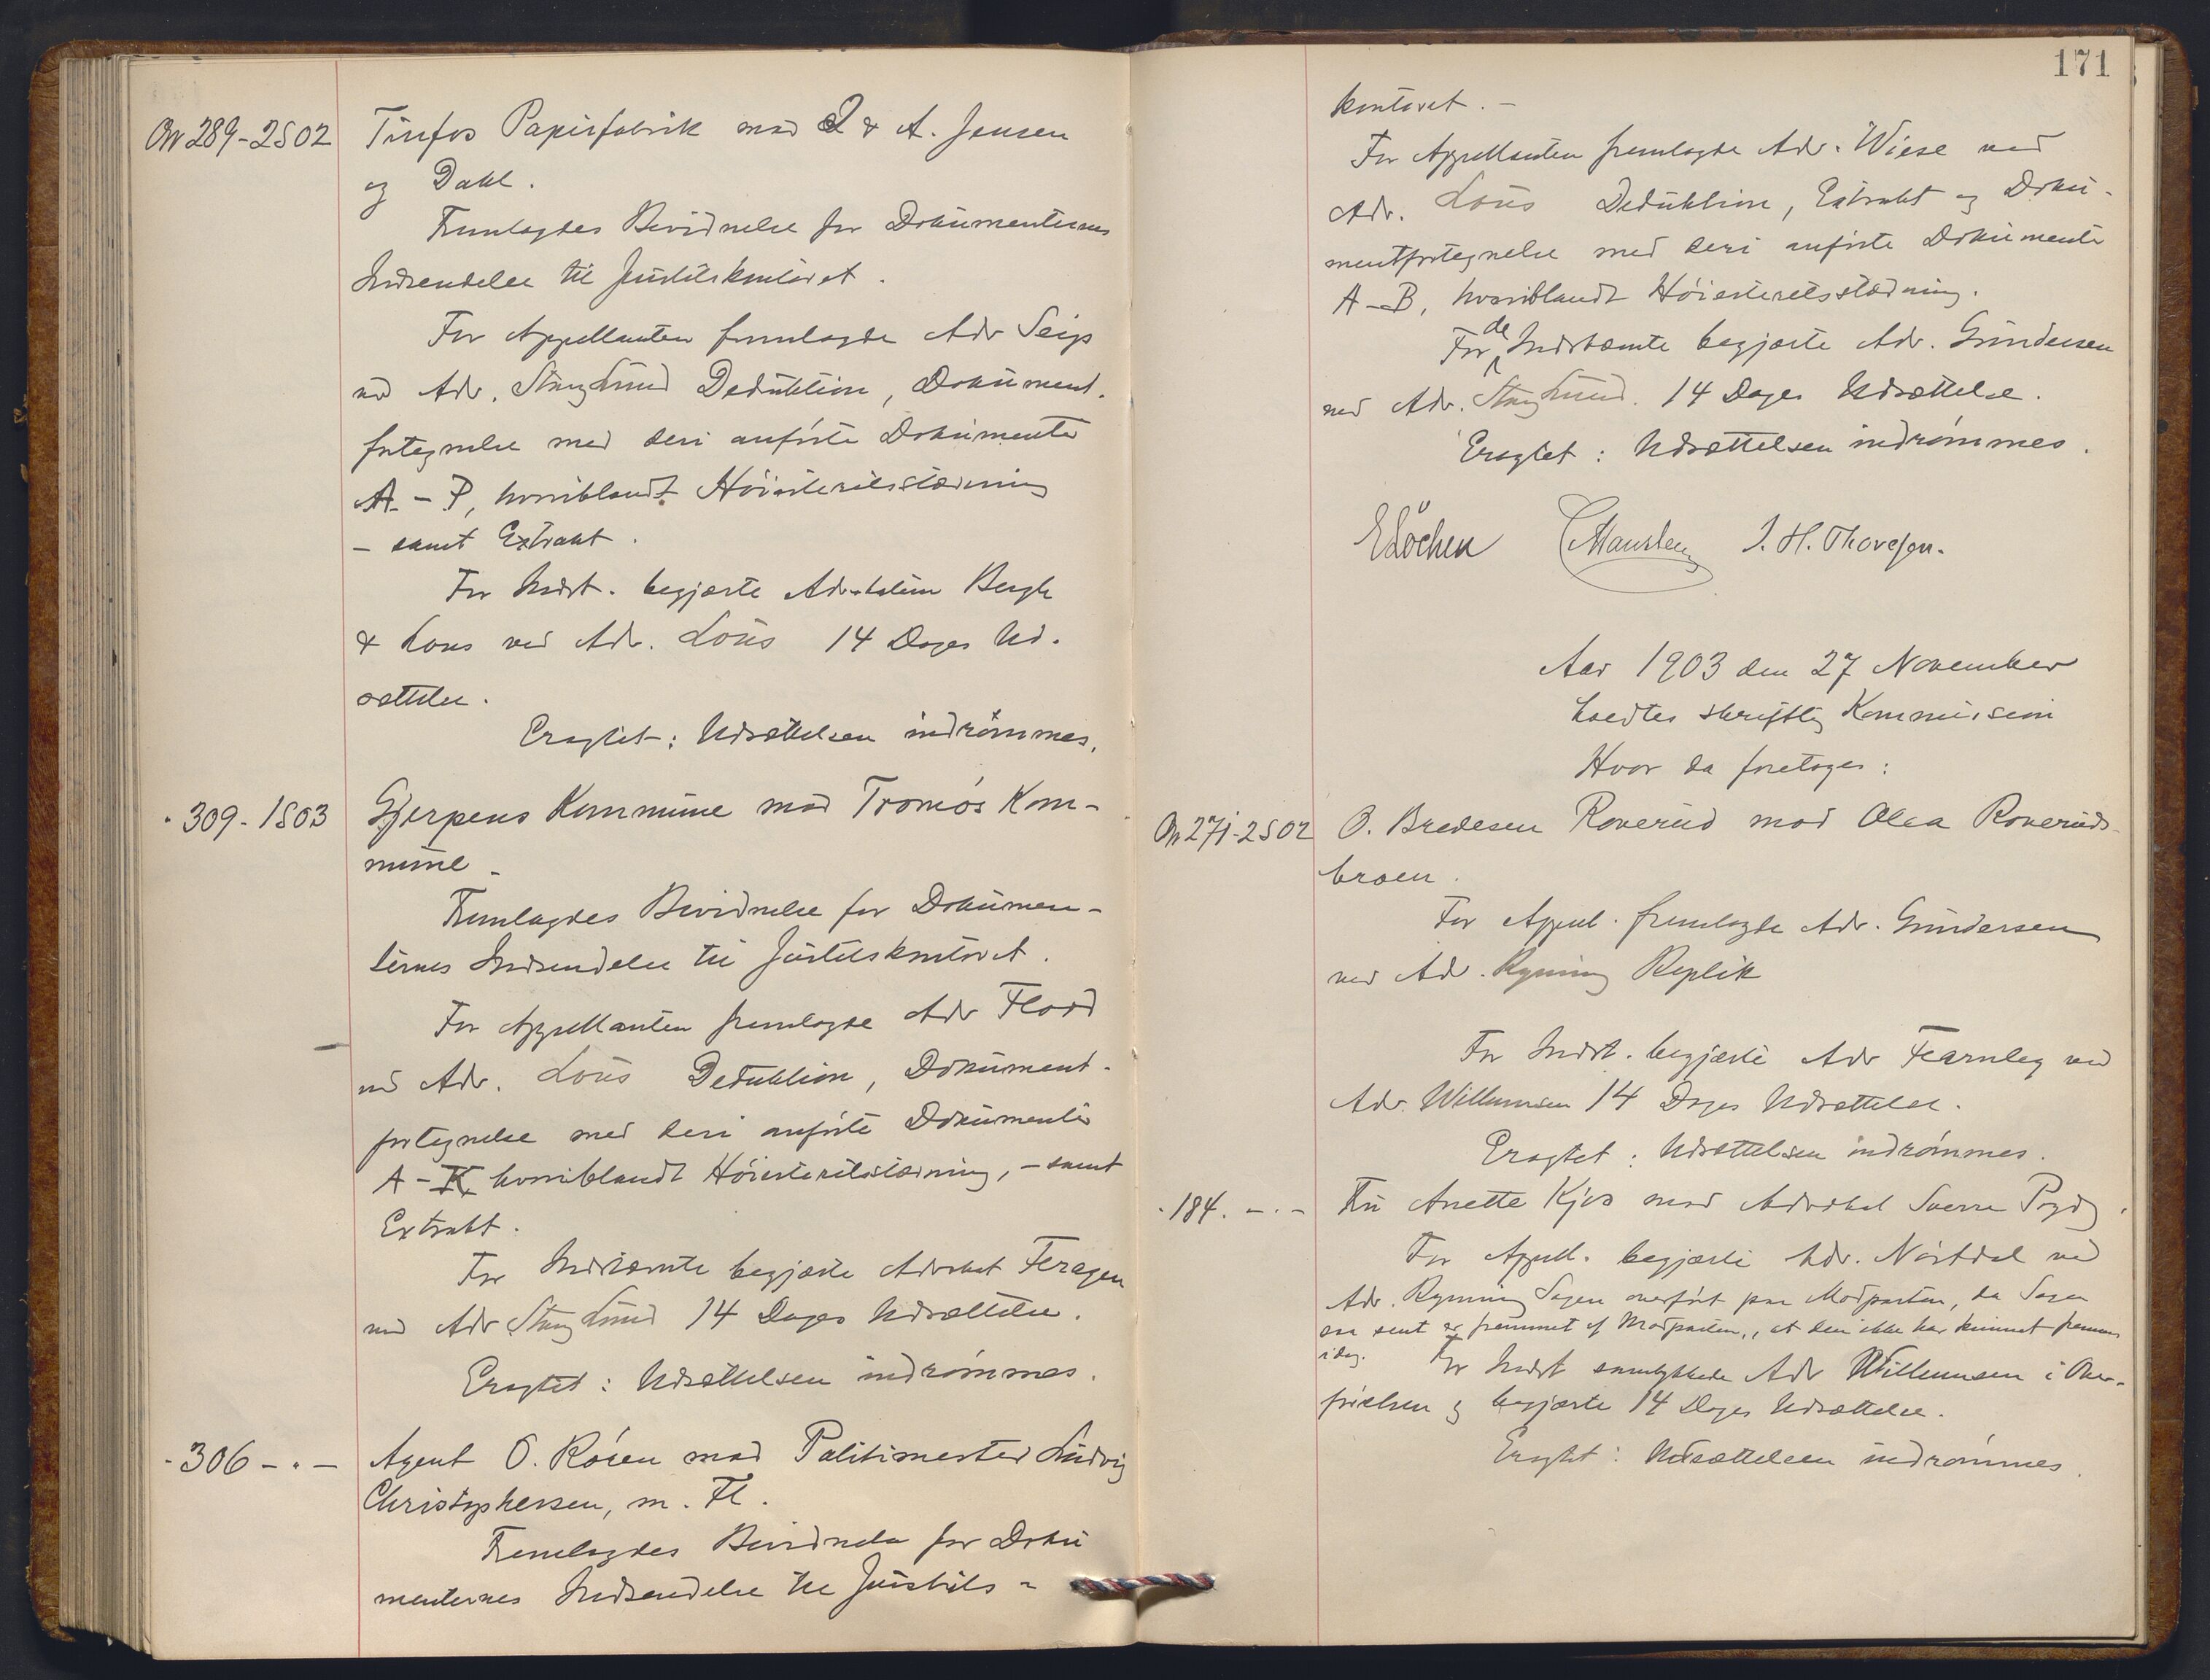 No 289-2S02 Tinfos Papirfabrik mod & A. Jensen
og Dahl.
Fremlagdes Bevidnelse for Dokumenternes
Indsendelse til Justitskontoret.
For Appellanten fremlagde Adv Seip
ved Adv. Stang Lund Deduktion, Dokument-
fortegnelse med deri anførte Dokumenter
A - P, hvoriblandt Høiesteretsstævning
- samt Extrakt.
For Indst. begjærte Advokaterne Bergh
& Lous ved Adv. Lous 14 Dages Ud-
sættelse.
Eragtet: Udsættelsen indrømmes.
" 309-1S03 Gjerpens Kommune mod Tromøs Kom-
mune -
Fremlagdes Bevidnelse for Dokumen-
ternes Indsendelse til Justitskontoret.
For Appellanten fremlagde Adv Flood
ved Adv. Lous Deduktion, Dokument-
fortegnelse med deri anførte Dokumenter
A - K, hvoriblandt Høiesteretsstævning, - samt
Extrakt.
For Indstævnte begjærte Advokat Feragen
ved Adv Stang Lund 14 Dages Udsættelse.
Eragtet: Udsættelsen indrømmes.
" 306 - " - Agent O. Rosen mod Politimester Ludvig
Christophersen, m. Fl.
Fremlagdes Bevidnelse for Doku
menternes Indsendelse til Justits-
171
kontoret. -
For Appellanten fremlagde Adv. Wiese ved
Adv. Lous Deduktion, Extrakt og Doku-
mentfortegnelse med deri anførte Dokumenter
A - B, hvoriblandt Høiesteretsstævning.
For de Indstævnte begjærte Adv. Gundersen
ved Adv. Stang Lund. 14 Dages Udsættelse.
Eragtet: Udsættelsen indrømmes.
E Løchen J. H. Thoresen.
Aar 1903 den 27 November
holdtes skriftlig Kommission
Hvor da foretoges:
No 271-2S02 O. Bredesen Roverud mod Olea Roveruds-
broen.
For Appel. fremlagde Adv. Gundersen
ved Adv. Rynning Replik
For Indst. begjærte Adv Fearnley ved
Adv. Willumsen 14 Dages Udsættelse.
Eragtet: Udsættelsen indrømmes.
" 184. - " - Fru Anette Kjos mod Advokat Sverre
For Appell. begjærte Adv. Nørtdal ved
Adv. Rynning Sagen overført paa Modparten, da Sagen
saa sent er fremmet af Modparten, at den ikke har kunnet fremmes
idag. For Indst samtykkede Adv Willumsen i Over-
førelsen og begjærte 14 Dages Udsættelse.
Eragtet: Udsættelsen indrømmes.